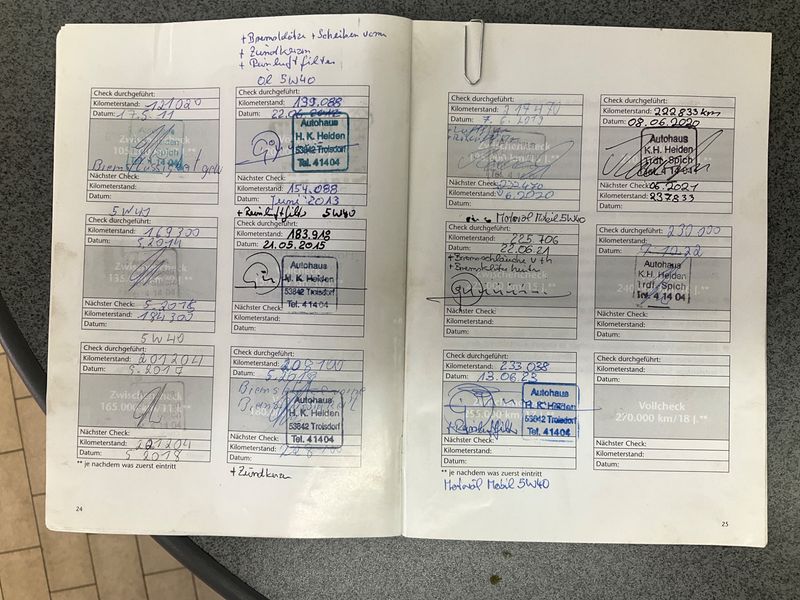 + Bremsklötze + Scheiben vorn
+ Zündkerzen
+ Reinluftfilter
Öl 5W40
Check durchgeführt:
Kilometerstand: 121020
Datum: 17.5.11
Nächster Check:
Kilometerstand:
Datum:
Check durchgeführt:
Kilometerstand: 139.088
Datum: 22.06.2012
Autohaus
H. K. Heiden
53842 Troisdorf
Tel. 41404
Nächster Check:
Kilometerstand: 154.088
Datum: Juni 2013
5W40
Check durchgeführt:
Kilometerstand: 169300
Datum: 5.2014
135.000
Nächster Check:
Kilometerstand: 184300
Datum:
+ Reinluftfilter 5W40
Check durchgeführt:
Kilometerstand: 183.912
Datum: 21.05.2015
Autohaus
H. K. Heiden
53842 Troisdorf
Tel. 41404
Nächster Check:
Kilometerstand:
Datum:
5W40
Check durchgeführt:
Kilometerstand: 201204
Datum: 5.2017
Zwischencheck
165.000 km/11 J.**
Nächster Check:
Kilometerstand:
Datum: 5.2018
Check durchgeführt:
Kilometerstand:
Datum:
Autohaus
H. K. Heiden
53842 Troisdorf
Tel. 41404
Nächster Check:
Kilometerstand:
Datum:
** je nachdem was zuerst eintritt
+ Zündkerzen
24
Check durchgeführt:
Kilometerstand: 217470
Datum:
Zwischencheck
Nächster Check:
Kilometerstand: 232470
Datum: 6.2020
Check durchgeführt:
Kilometerstand: 222 833 km
Datum: 08.06.2020
Autohaus
K.H. Heiden
Trdf. Spich
Tel. 4 14 04
Nächster Check: 06.2021
Kilometerstand: 237.833
Datum:
Motoröl Mobil 5W40
Check durchgeführt:
Kilometerstand: 225.706
Datum: 22.06.21
+ Bremsschläuche v + h
+ Bremsklötze hinten
Zwischencheck
Nächster Check:
Kilometerstand:
Datum:
Check durchgeführt:
Kilometerstand: 230 000
Datum:
Autohaus
K.H. Heiden
Trdf. Spich
Tel. 4 14 04
Nächster Check:
Kilometerstand:
Datum:
Check durchgeführt:
Kilometerstand: 233 038
Datum: 13.06.23
255.000 km
Autohaus
H. K. Heiden
53842 Troisdorf
Tel. 41404
Nächster Check:
Kilometerstand:
Datum:
Check durchgeführt:
Kilometerstand:
Datum:
Vollcheck
270.000 km/18 J.**
Nächster Check:
Kilometerstand:
Datum:
** je nachdem was zuerst eintritt
Motoröl Mobil 5W40
25